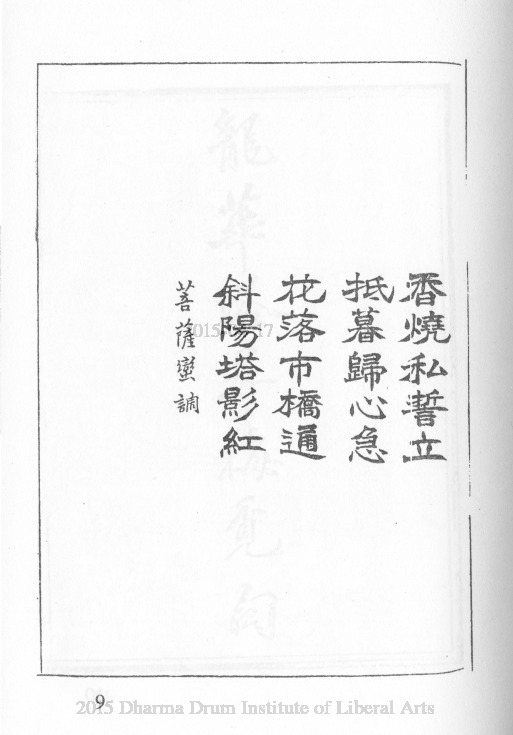 香燒私誓立
抵暮歸心急
花落市橋通
斜陽塔影紅
菩薩蠻調
9
2015 Dharma Drum Institute of Liberal Arts